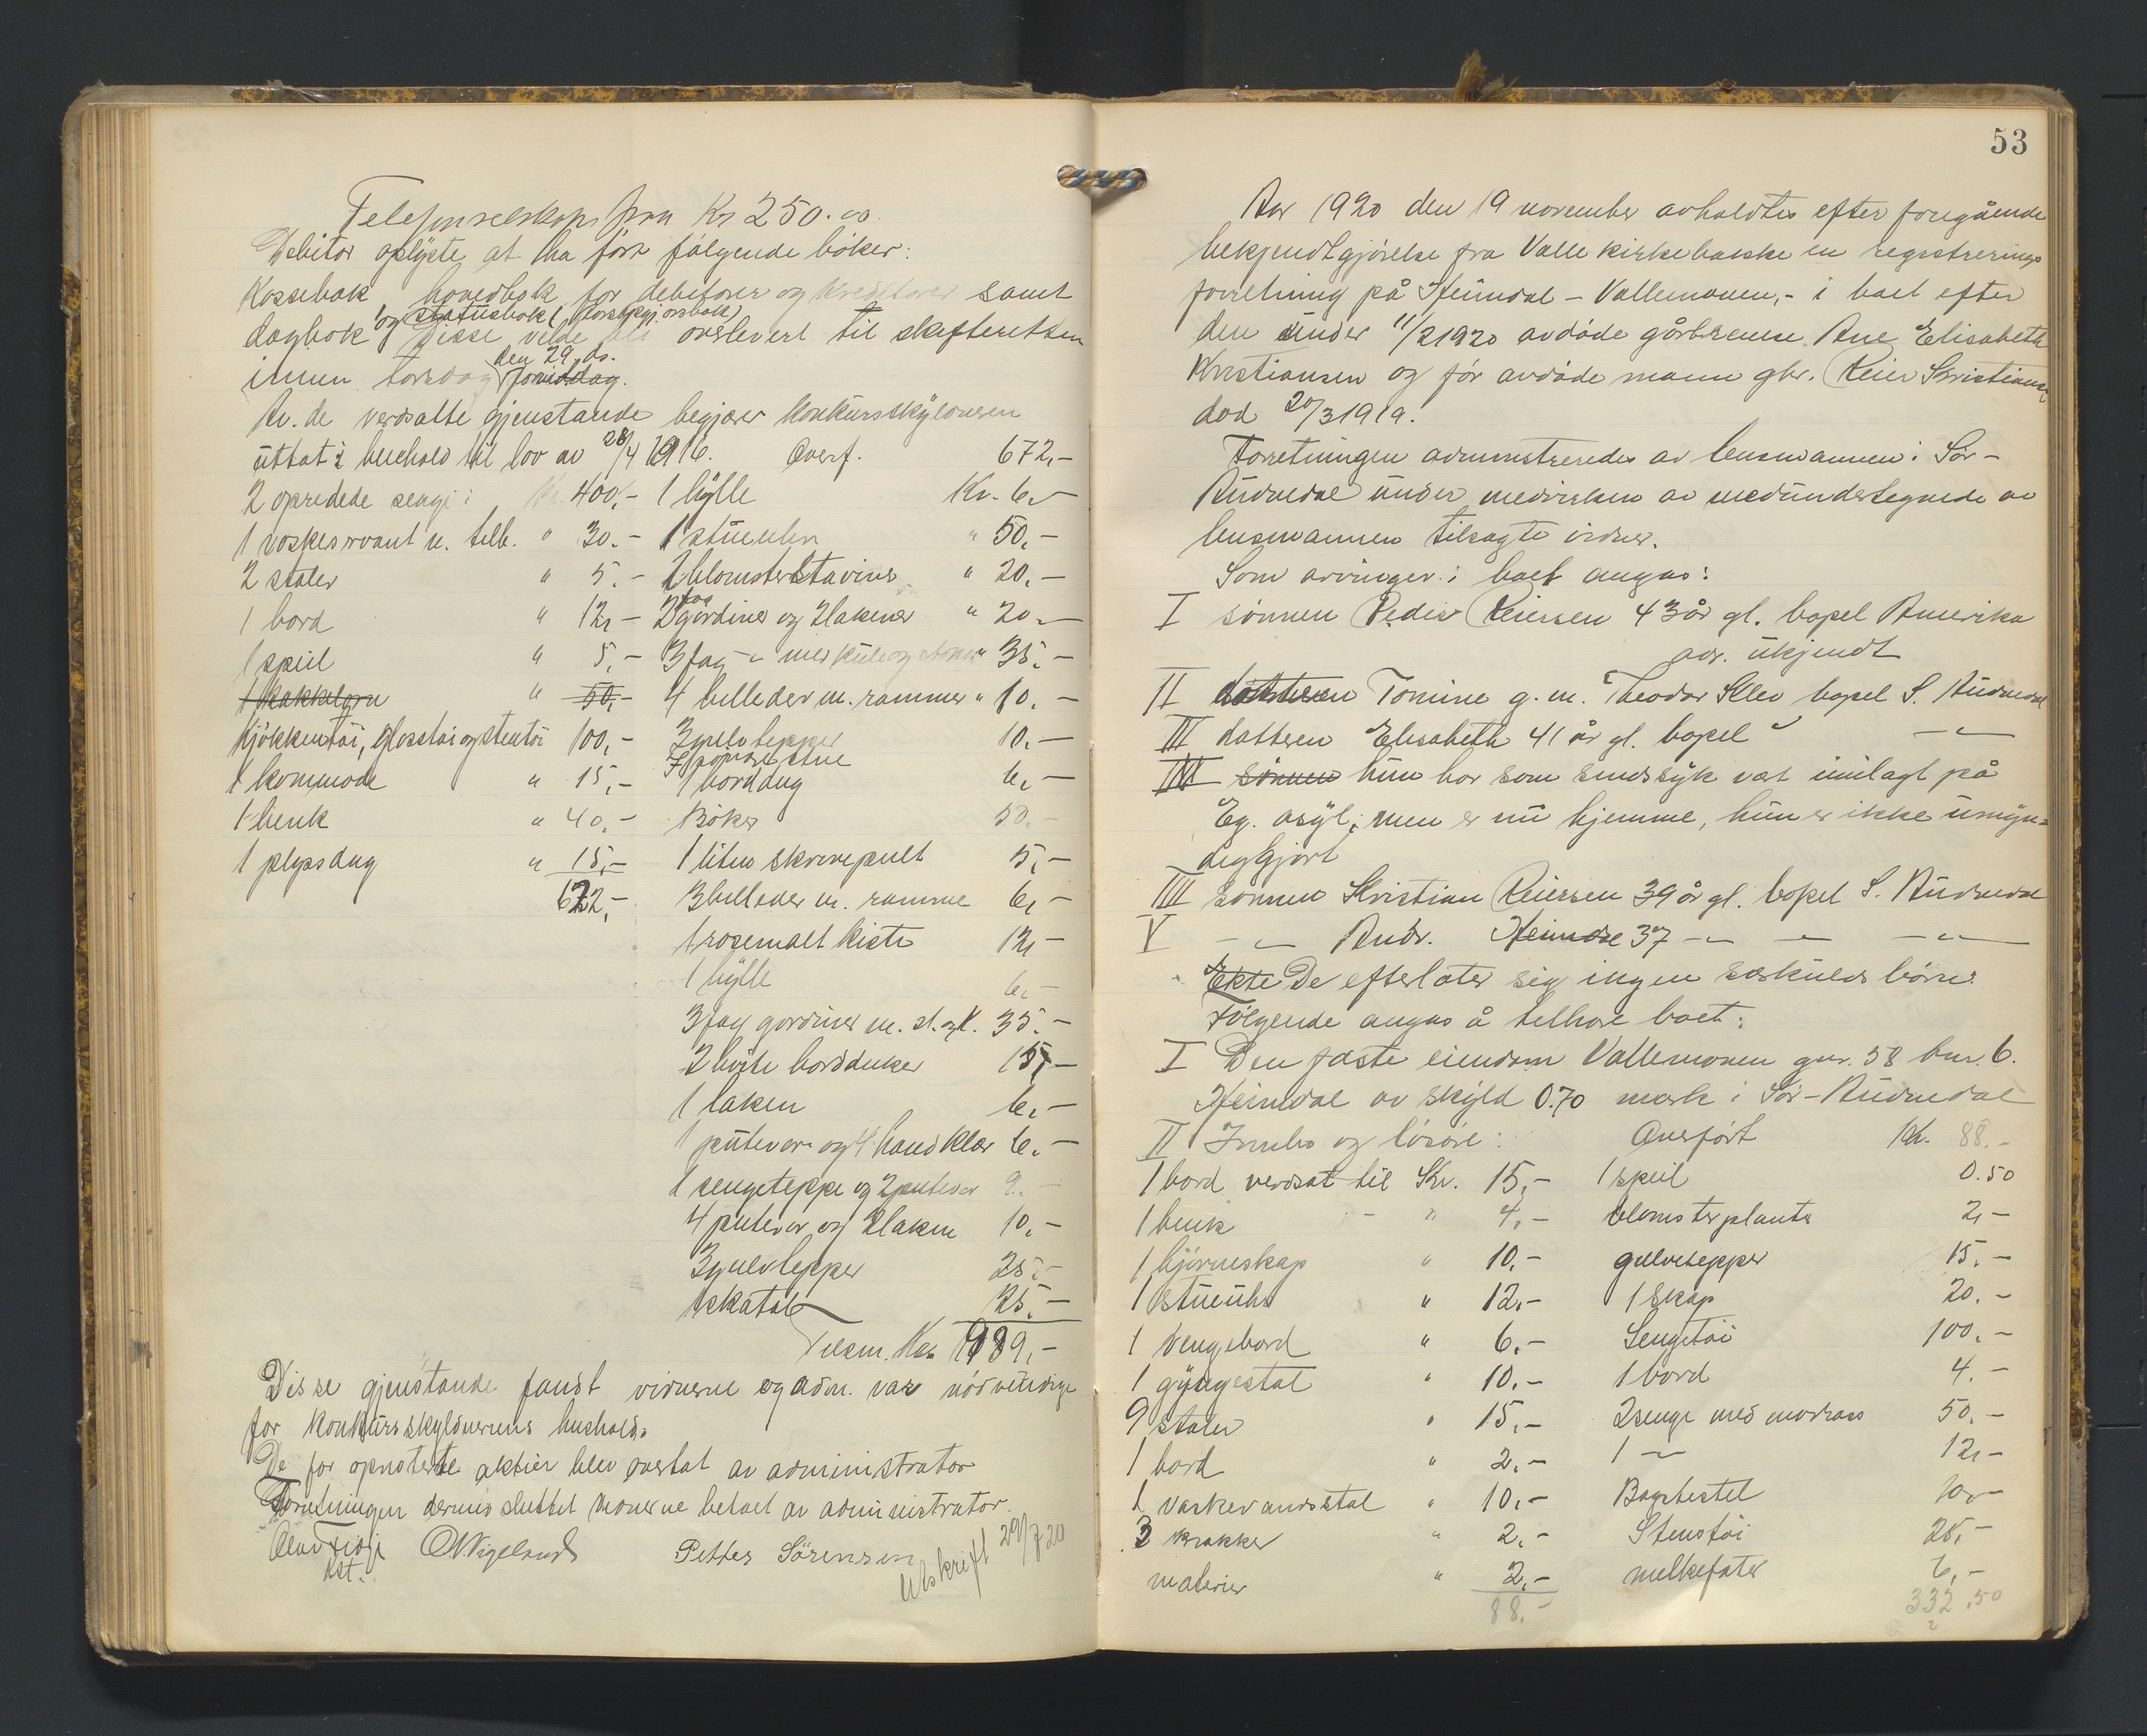 Telefonselskap fra Kr 250.00.
Debitor oplyste at ha ført følgende bøker:
Kassebok hovedbok for debitorer og kreditorer samt
dagbok og statusbok (                ) Disse vilde bli overlevert til skifteretten
innen torsdag den 29. ds. formiddag.
Av de verdsatte gjenstande begjærer konkursskyldneren
uttat i henhold til lov av 28/4 1916. Overf. 672,-
2 opredede senge: Kr. 400,- 1 hylle Kr. 6,-
1 vaskeservant m. tilb. " 30.- 1 stueuhr " 50,-
2 stoler " 5.- 2 blomsterstativer " 20,-
1 bord " 12,- 2 fag gardiner og 2 lakener " 20,-
1 speil " 5,- 3 fag -"- med                " 35.-
1 kakkelovn " 50,- 4 billeder m. rammer " 10.-
Kjøkkentøi, Glasstøi og stentøi 100,- 3 gulvtepper 10.-
1 kommode " 15,- 1 borddug 6,-
1 benk " 40.- Bøker 50.-
1 plysdug " 15,- 1 liten skrivepult 5,-
672,- 3 billeder m. ramme 6,-
1 rosemalt kiste 12,-
1 hylle 6,-
3 fag gardiner m. st. og k. 35.-
2 hvite bordduker 15,-
1 laken 6,-
1 putevar og 4 handklær 6.-
1 sengeteppe og 2 putevar 9.-
4 putevar og 2 laken 10,-
3 gulvtepper 25,-
1 skatol 25.-
Tilsm. Kr. 1039,-
Disse gjenstande fandt vidnerne og adm. var nødvendige
for konkursskyldnerens hushold.
De før opnoterte aktier blev overtat av administrator
Forretningen dermed sluttet                betalt av administrator.
Olav Fidje O Vigeland Petter Sørensen
kst.
Utskrift 29/7 20
53
Aar 1920 den 19 november avholdtes efter foregående
bekjendtgjørelse fra Valle kirkebakke en registrerings
forretning på Heimdal - Vallemonen,- i boet efter
den under 11/2 1920 avdøde gårbrenke Ane Elisabeth
Kristiansen og før avdøde mann gbr. Reier Kristiansen
død 20/3 1919.
Forretningen administreredes av lensmannen i Sør-
Audnedal under medvirken av medundertegnede av
lensmannen tilsagte vidner.
Som arvinger i boet angas:
I sønnen Peder Reiersen 43 år gl. bopel Amerika
adr. ukjendt
II datteren Tomine g. m. Theodor Klev bopel S. Audnedal
III datteren Elisabeth 41 år gl. bopel -"-
IIII sønnen hun har som sindssyk vært innlagt på
Eg. asyl; men er nu hjemme, hun er ikke umyn=
diggjort
IIII sønnen Kristian Reiersen 39 år gl. bopel S. Audnedal
V -"- Andr. Heimdal 37 -"- -"- -"-
Ekte De efterlater sig ingen særkulds børn.
Følgende angas å tilhøre boet:
I Den faste eiendom Vallemonen gnr. 58 bnr. 6.
Heimdal av skyld 0.70 mark i Sør-Audnedal
II Innbo og løsøre: Overført Kr. 88.-
1 bord verdsat til Kr. 15,- 1 speil 0.50
1 benk - " 4,- blomsterplanter 2,-
1 hjørneskap " 10,- gulvtepper 15,-
1 stueuhr " 12,- 1 skap 20.-
1 hengebord " 6,- Sengetøi 100,-
1 gyngestol " 10,- 1 bord 4.-
9 stoler " 15,- 2 senge med madrass 50,-
1 bord " 2,- 1 -"- 12,-
1 vaskevandsstol " 10,-                10,-
3 krakker " 2,- Stentøi 25,-
malerier " 2,- melkefater 6,-
88.- 332.50